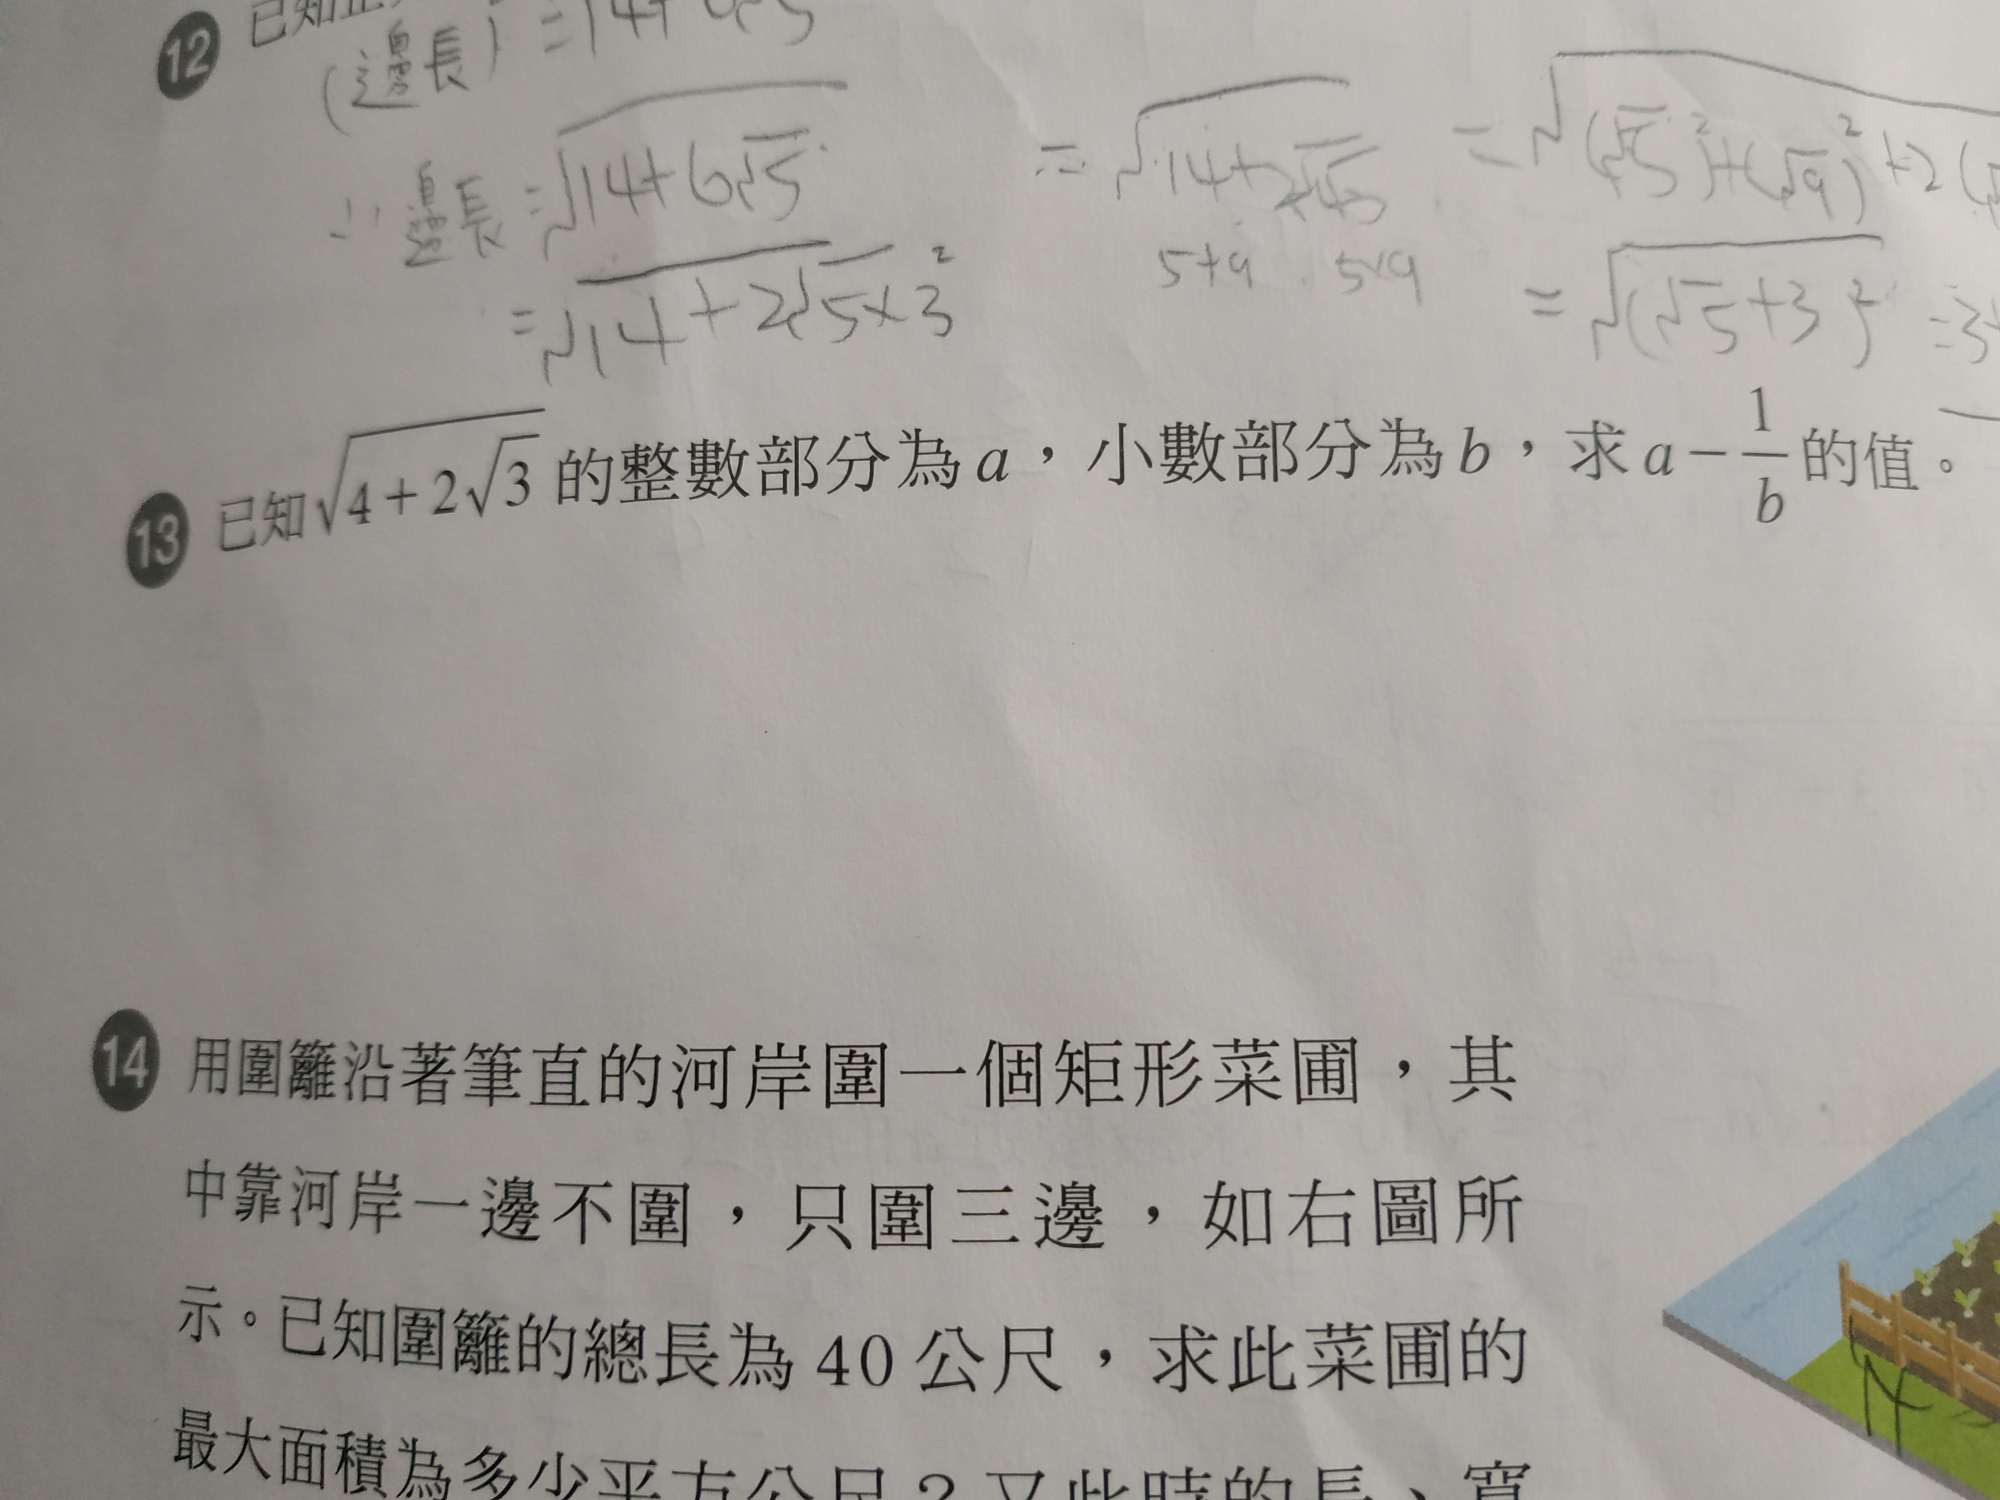 12 已知
(邊長) = 14+6√5
∴ 邊長 = √(14+6√5) = √(14+2√45) = √((√5)²+(√9)²+2(√
5+9 5×9
= √(14+2√(5×3²)) = √((√5+3)²) = 3+
13 已知√(4+2√3) 的整數部分為a，小數部分為b，求a−1/b的值。
14 用圍籬沿著筆直的河岸圍一個矩形菜圃，其
中靠河岸一邊不圍，只圍三邊，如右圖所
示。已知圍籬的總長為40公尺，求此菜圃的
最大面積為多少平方公尺？又此時的長、寬